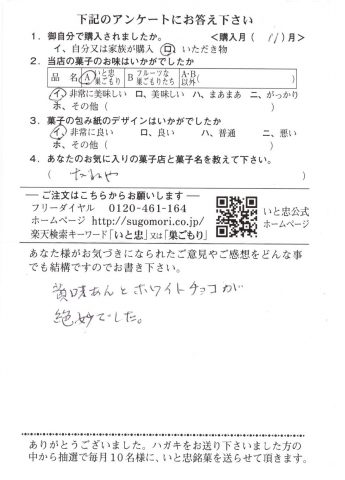 下記のアンケートにお答え下さい
1．御自分で購入されましたか。 <購入月( 11 )月>
イ、自分又は家族が購入 ロ、いただき物
2．当店の菓子のお味はいかがでしたか
品 名 A いと忠 巣ごもり B フルーツな 巣ごもりたち A・B 以外( )
イ、非常に美味しい ロ、美味しい ハ、まあまあ ニ、がっかり
ホ、その他( )
3．菓子の包み紙のデザインはいかがでしたか
イ、非常に良い ロ、良い ハ、普通 ニ、悪い
ホ、その他( )
4．あなたのお気に入りの菓子店と菓子名を教えて下さい。
( たねや )
ご注文はこちらからお願いします
フリーダイヤル 0120-461-164
ホームページ http://sugomori.co.jp/
楽天検索キーワード「いと忠」又は「巣ごもり」
いと忠公式
ホームページ
あなた様がお気づきになられたご意見やご感想をどんな事
でも結構ですのでお書き下さい。
黄味あんとホワイトチョコが
絶妙でした。
ありがとうございました。ハガキをお送り下さいました方の
中から抽選で毎月10名様に、いと忠銘菓を送らせて頂きます。